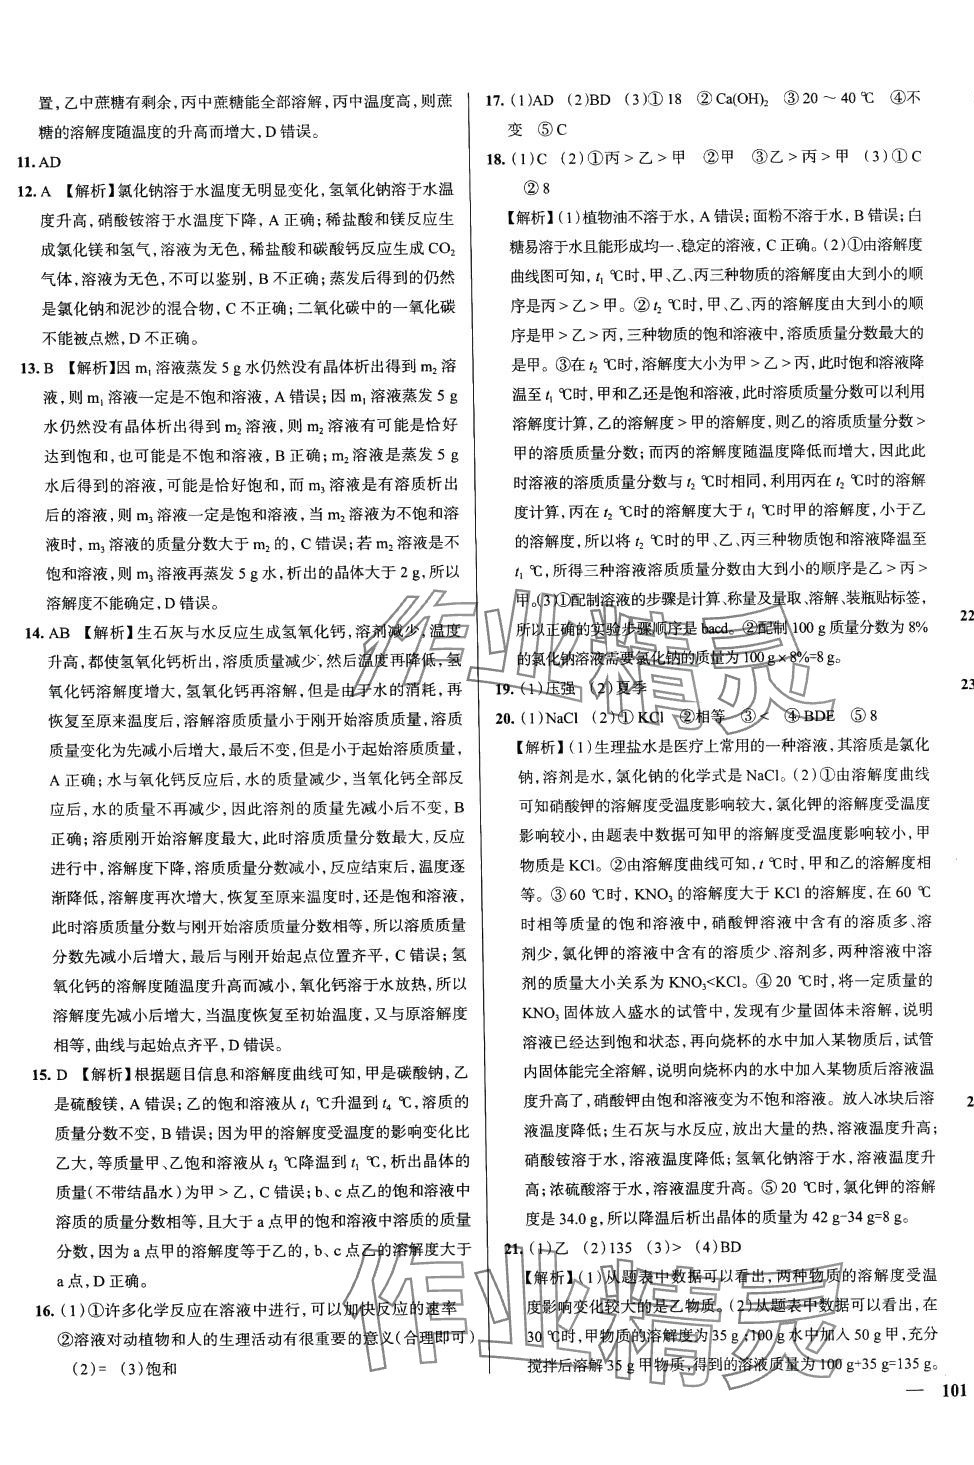 置，乙中蔗糖有剩余，丙中蔗糖能全部溶解，丙中温度高，则蔗
糖的溶解度随温度的升高而增大，D 错误。
11. AD
12. A 【解析】氯化钠溶于水温度无明显变化，氢氧化钠溶于水温
度升高，硝酸铵溶于水温度下降，A 正确；稀盐酸和镁反应生
成氯化镁和氢气，溶液为无色，稀盐酸和碳酸钙反应生成 CO₂
气体，溶液为无色，不可以鉴别，B 不正确；蒸发后得到的仍然
是氯化钠和泥沙的混合物，C 不正确；二氧化碳中的一氧化碳
不能被点燃，D 不正确。
13. B 【解析】因 m₁ 溶液蒸发 5 g 水仍然没有晶体析出得到 m₂ 溶
液，则 m₁ 溶液一定是不饱和溶液，A 错误；因 m₁ 溶液蒸发 5 g
水仍然没有晶体析出得到 m₂ 溶液，m₂ 溶液有可能是恰好
达到饱和，也可能是不饱和溶液，B 正确；m₂ 溶液是蒸发 5 g
水后得到的溶液，可能是恰好饱和，而 m₃ 溶液是有溶质析出
后的溶液，则 m₃ 溶液一定是饱和溶液，当 m₂ 溶液为不饱和溶
液时，m₃ 溶液的质量分数大于 m₂ 的，C 错误；若 m₂ 溶液是不
饱和溶液，则 m₃ 溶液再蒸发 5 g 水，析出的晶体大于 2 g，所以
溶解度不能确定，D 错误。
14. AB 【解析】生石灰与水反应生成氢氧化钙，溶剂减少，温度
升高，都使氢氧化钙析出，溶质质量减少，然后温度再降低，氢
氧化钙溶解度增大，氢氧化钙再溶解，但是由于水的消耗，再
恢复至原来温度后，溶解溶质质量小于刚开始溶质质量，溶质
质量变化为先减小后增大，最后不变，但是小于起始溶质质量，
A 正确；水与氧化钙反应后，水的质量减少，当氧化钙全部反
应后，水的质量不再减少，因此溶剂的质量先减小后不变，B
正确；溶质刚开始溶解度最大，此时溶质质量分数最大，反应
进行中，溶解度下降，溶质质量分数减小，反应结束后，温度逐
渐降低，溶解度再次增大，恢复至原来温度时，还是饱和溶液，
此时溶质质量分数与刚开始溶质质量分数相等，所以溶质质量
分数先减小后增大，最后与刚开始起点位置齐平，C 错误；氢
氧化钙的溶解度随温度升高而减小，氧化钙溶于水放热，所以
溶解度先减小后增大，当温度恢复至初始温度，又与原溶解度
相等，曲线与起始点齐平，D 错误。
15. D 【解析】根据题目信息和溶解度曲线可知，甲是碳酸钠，乙
是硫酸镁，A 错误；乙的饱和溶液从 t₁ ℃升温到 t₄ ℃，溶质的
质量分数不变，B 错误；因为甲的溶解度受温度的影响变化比
乙大，等质量甲、乙饱和溶液从 t₃ ℃降温到 t₁ ℃，析出晶体的
质量（不带结晶水）为甲＞乙，C 错误；b、c 点乙的饱和溶液中
溶质的质量分数相等，且大于 a 点甲的饱和溶液中溶质的质量
分数，因为 a 点甲的溶解度等于乙的，b、c 点乙的溶解度大于
a 点，D 正确。
16. (1)①许多化学反应在溶液中进行，可以加快反应的速率
②溶液对动植物和人的生理活动有很重要的意义（合理即可）
(2)= (3)饱和
17. (1)AD (2)BD (3)①18 ②Ca(OH)₂ ③20～40 ℃ ④不
变 ⑤C
18. (1)C (2)①丙＞乙＞甲 ②甲 ③乙＞丙＞甲 (3)①C
②8
【解析】(1)植物油不溶于水，A 错误；面粉不溶于水，B 错误；白
糖易溶于水且能形成均一、稳定的溶液，C 正确。(2)①由溶解度
曲线图可知，t₁ ℃时，甲、乙、丙三种物质的溶解度由大到小的顺
序是丙＞乙＞甲。②t₂ ℃时，甲、乙、丙的溶解度由大到小的顺
序是甲＞乙＞丙，三种物质的饱和溶液中，溶质质量分数最大的
是甲。③在 t₂ ℃时，溶解度大小为甲＞乙＞丙，此时饱和溶液降
温至 t₁ ℃时，甲和乙还是饱和溶液，此时溶质质量分数可以利用
溶解度计算，乙的溶解度＞甲的溶解度，则乙的溶质质量分数＞
甲的溶质质量分数；而丙的溶解度随温度降低而增大，因此此
时溶液的溶质质量分数与 t₂ ℃时相同，利用丙在 t₂ ℃时的溶解
度计算，丙在 t₂ ℃时的溶解度大于 t₁ ℃时甲的溶解度，小于乙
的溶解度，所以将 t₂ ℃时的甲、乙、丙三种物质饱和溶液降温至
t₁ ℃，所得三种溶液溶质质量分数由大到小的顺序是乙＞丙＞
甲。(3)①配制溶液的步骤是计算、称量及量取、溶解、装瓶贴标签，
所以正确的实验步骤顺序是 bacd。②配制 100 g 质量分数为 8%
的氯化钠溶液需要氯化钠的质量为 100 g×8%=8 g。
19. (1)压强 (2)夏季
20. (1)NaCl (2)①KCl ②相等 ③＜ ④BDE ⑤8
【解析】(1)生理盐水是医疗上常用的一种溶液，其溶质是氯化
钠，溶剂是水，氯化钠的化学式是 NaCl。(2)①由溶解度曲线
可知硝酸钾的溶解度受温度影响较大，氯化钾的溶解度受温度
影响较小，由题表中数据可知甲的溶解度受温度影响较小，甲
物质是 KCl。②由溶解度曲线可知，t ℃时，甲和乙的溶解度相
等。③60 ℃时，KNO₃ 的溶解度大于 KCl 的溶解度，在 60 ℃
时相等质量的饱和溶液中，硝酸钾溶液中含有的溶质多、溶
剂少，氯化钾的溶液中含有的溶质少、溶剂多，两种溶液中溶
剂的质量大小关系为 KNO₃<KCl。④20 ℃时，将一定质量的
KNO₃ 固体放入盛水的试管中，发现有少量固体未溶解，说明
溶液已经达到饱和状态，再向烧杯的水中加入某物质后，试管
内固体能完全溶解，说明向烧杯内的水中加入某物质后溶液温
度升高了，硝酸钾由饱和溶液变为不饱和溶液。放入冰块后溶
液温度降低；生石灰与水反应，放出大量的热，溶液温度升高；
硝酸铵溶于水，溶液温度降低；氢氧化钠溶于水，溶液温度升
高；浓硫酸溶于水，溶液温度升高。⑤20 ℃时，氯化钾的溶解
度是 34.0 g，所以降温后析出晶体的质量为 42 g-34 g=8 g。
21. (1)乙 (2)135 (3)> (4)BD
【解析】(1)从题表中数据可以看出，两种物质的溶解度受温
度影响变化较大的是乙物质。(2)从题表中数据可以看出，在
30 ℃时，甲物质的溶解度为 35 g，100 g 水中加入 50 g 甲，充分
搅拌后溶解 35 g 甲物质，得到的溶液质量为 100 g+35 g=135 g。
22
23
2
— 101
作业精灵
作业精灵